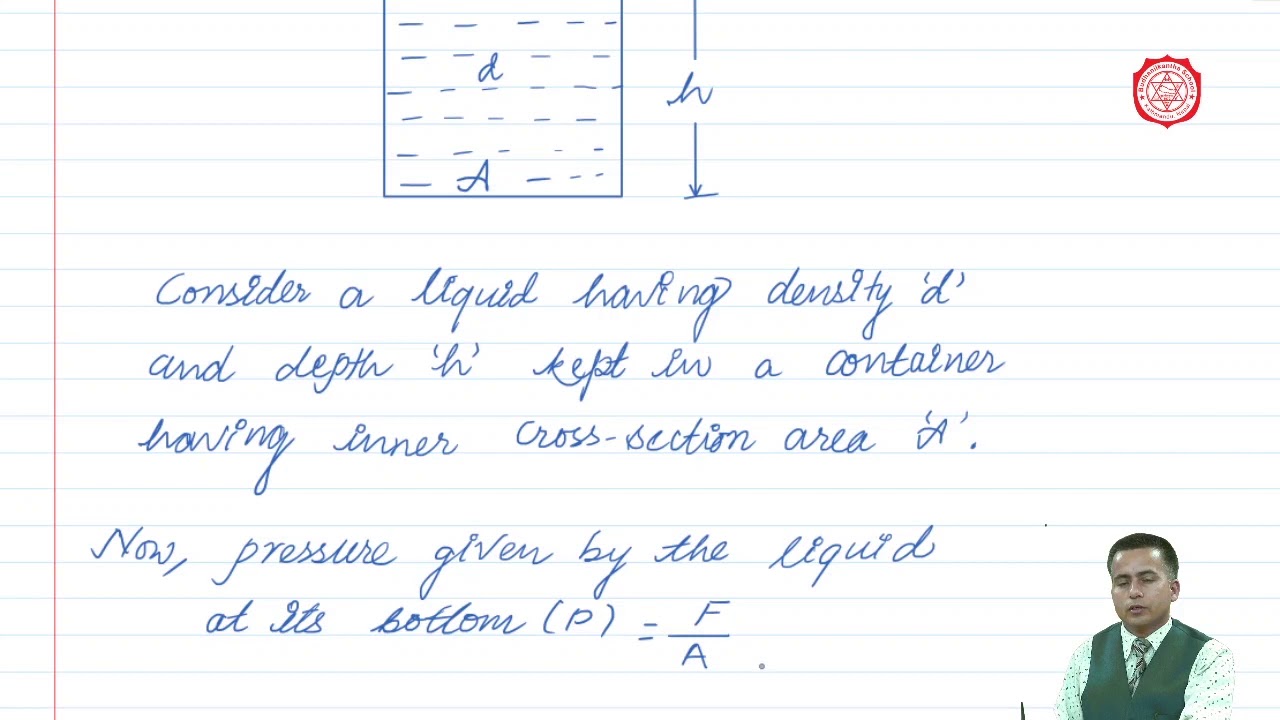 d
h
A
Budhanilkantha School
Kathmandu, Nepal
Consider a liquid having density 'd'
and depth 'h' kept in a container
having inner cross-section area 'A'.
Now, pressure given by the liquid
at its bottom (P) = F
A